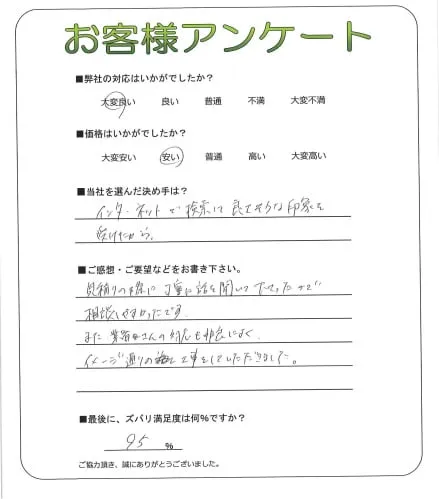 お客様アンケート
■弊社の対応はいかがでしたか?
大変良い 良い 普通 不満 大変不満
■価格はいかがでしたか?
大変安い 安い 普通 高い 大変高い
■当社を選んだ決め手は?
インターネットで検索して良さそうな印象を
受けたから。
■ご感想・ご要望などをお書き下さい。
見積りの際に丁寧に話を聞いて下さったので
相談しやすかったです。
また業者さんの対応も非常によく、
イメージ通りの 工事をしていただきました。
■最後に、ズバリ満足度は何%ですか?
95 %
ご協力頂き、誠にありがとうございました。